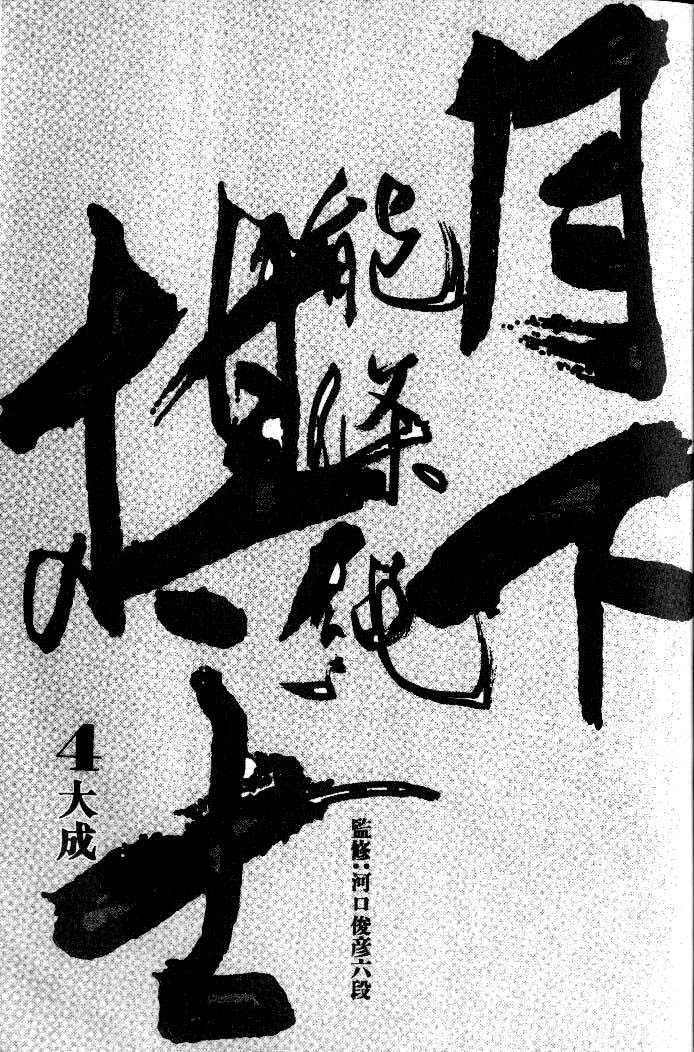 月下
棋士
能條純一
監修:河口俊彦六段
4 大成